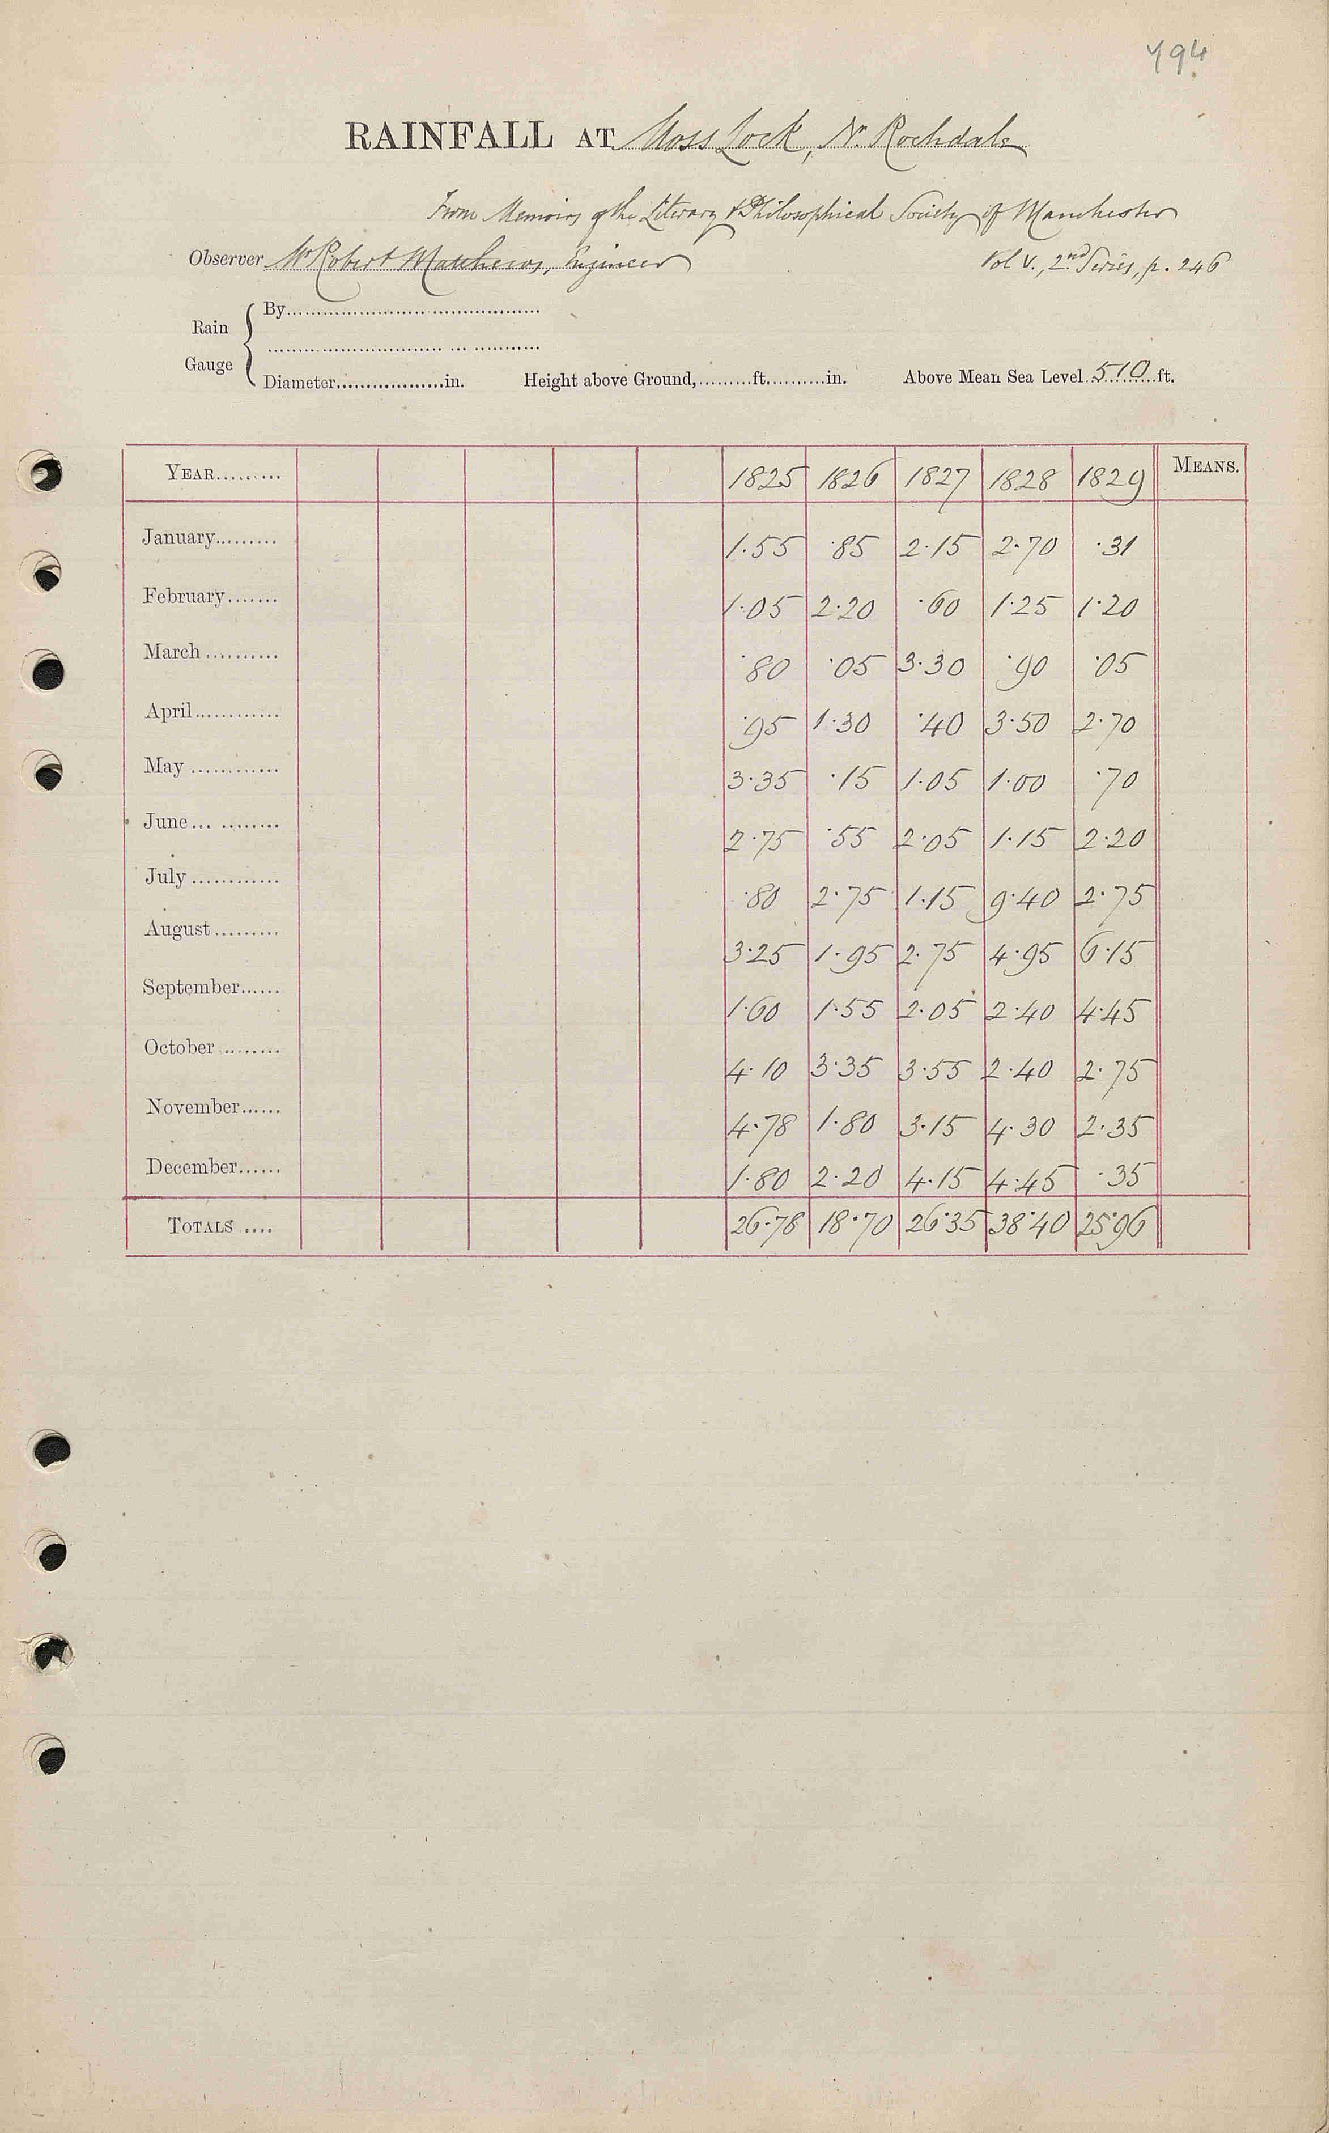 494
RAINFALL AT Moss Lock, Nr. Rochdale
From Memoirs of the Literary & Philosophical Society of Manchester
Observer Mr Robert Matthews, Engineer Vol V., 2nd Series, p. 246
Rain Gauge { By
Diameter in. Height above Ground, ft. in. Above Mean Sea Level 510 ft.
YEAR 1825 1826 1827 1828 1829 MEANS.
January 1.55 .85 2.15 2.70 .31
February 1.05 2.20 .60 1.25 1.20
March .80 .05 3.30 .90 .05
April .95 1.30 .40 3.50 2.70
May 3.35 .15 1.05 1.00 .70
June 2.75 .55 2.05 1.15 2.20
July .80 2.75 1.15 9.40 2.75
August 3.25 1.95 2.75 4.95 6.15
September 1.60 1.55 2.05 2.40 4.45
October 4.10 3.35 3.55 2.40 2.75
November 4.78 1.80 3.15 4.30 2.35
December 1.80 2.20 4.15 4.45 .35
TOTALS 26.78 18.70 26.35 38.40 25.96